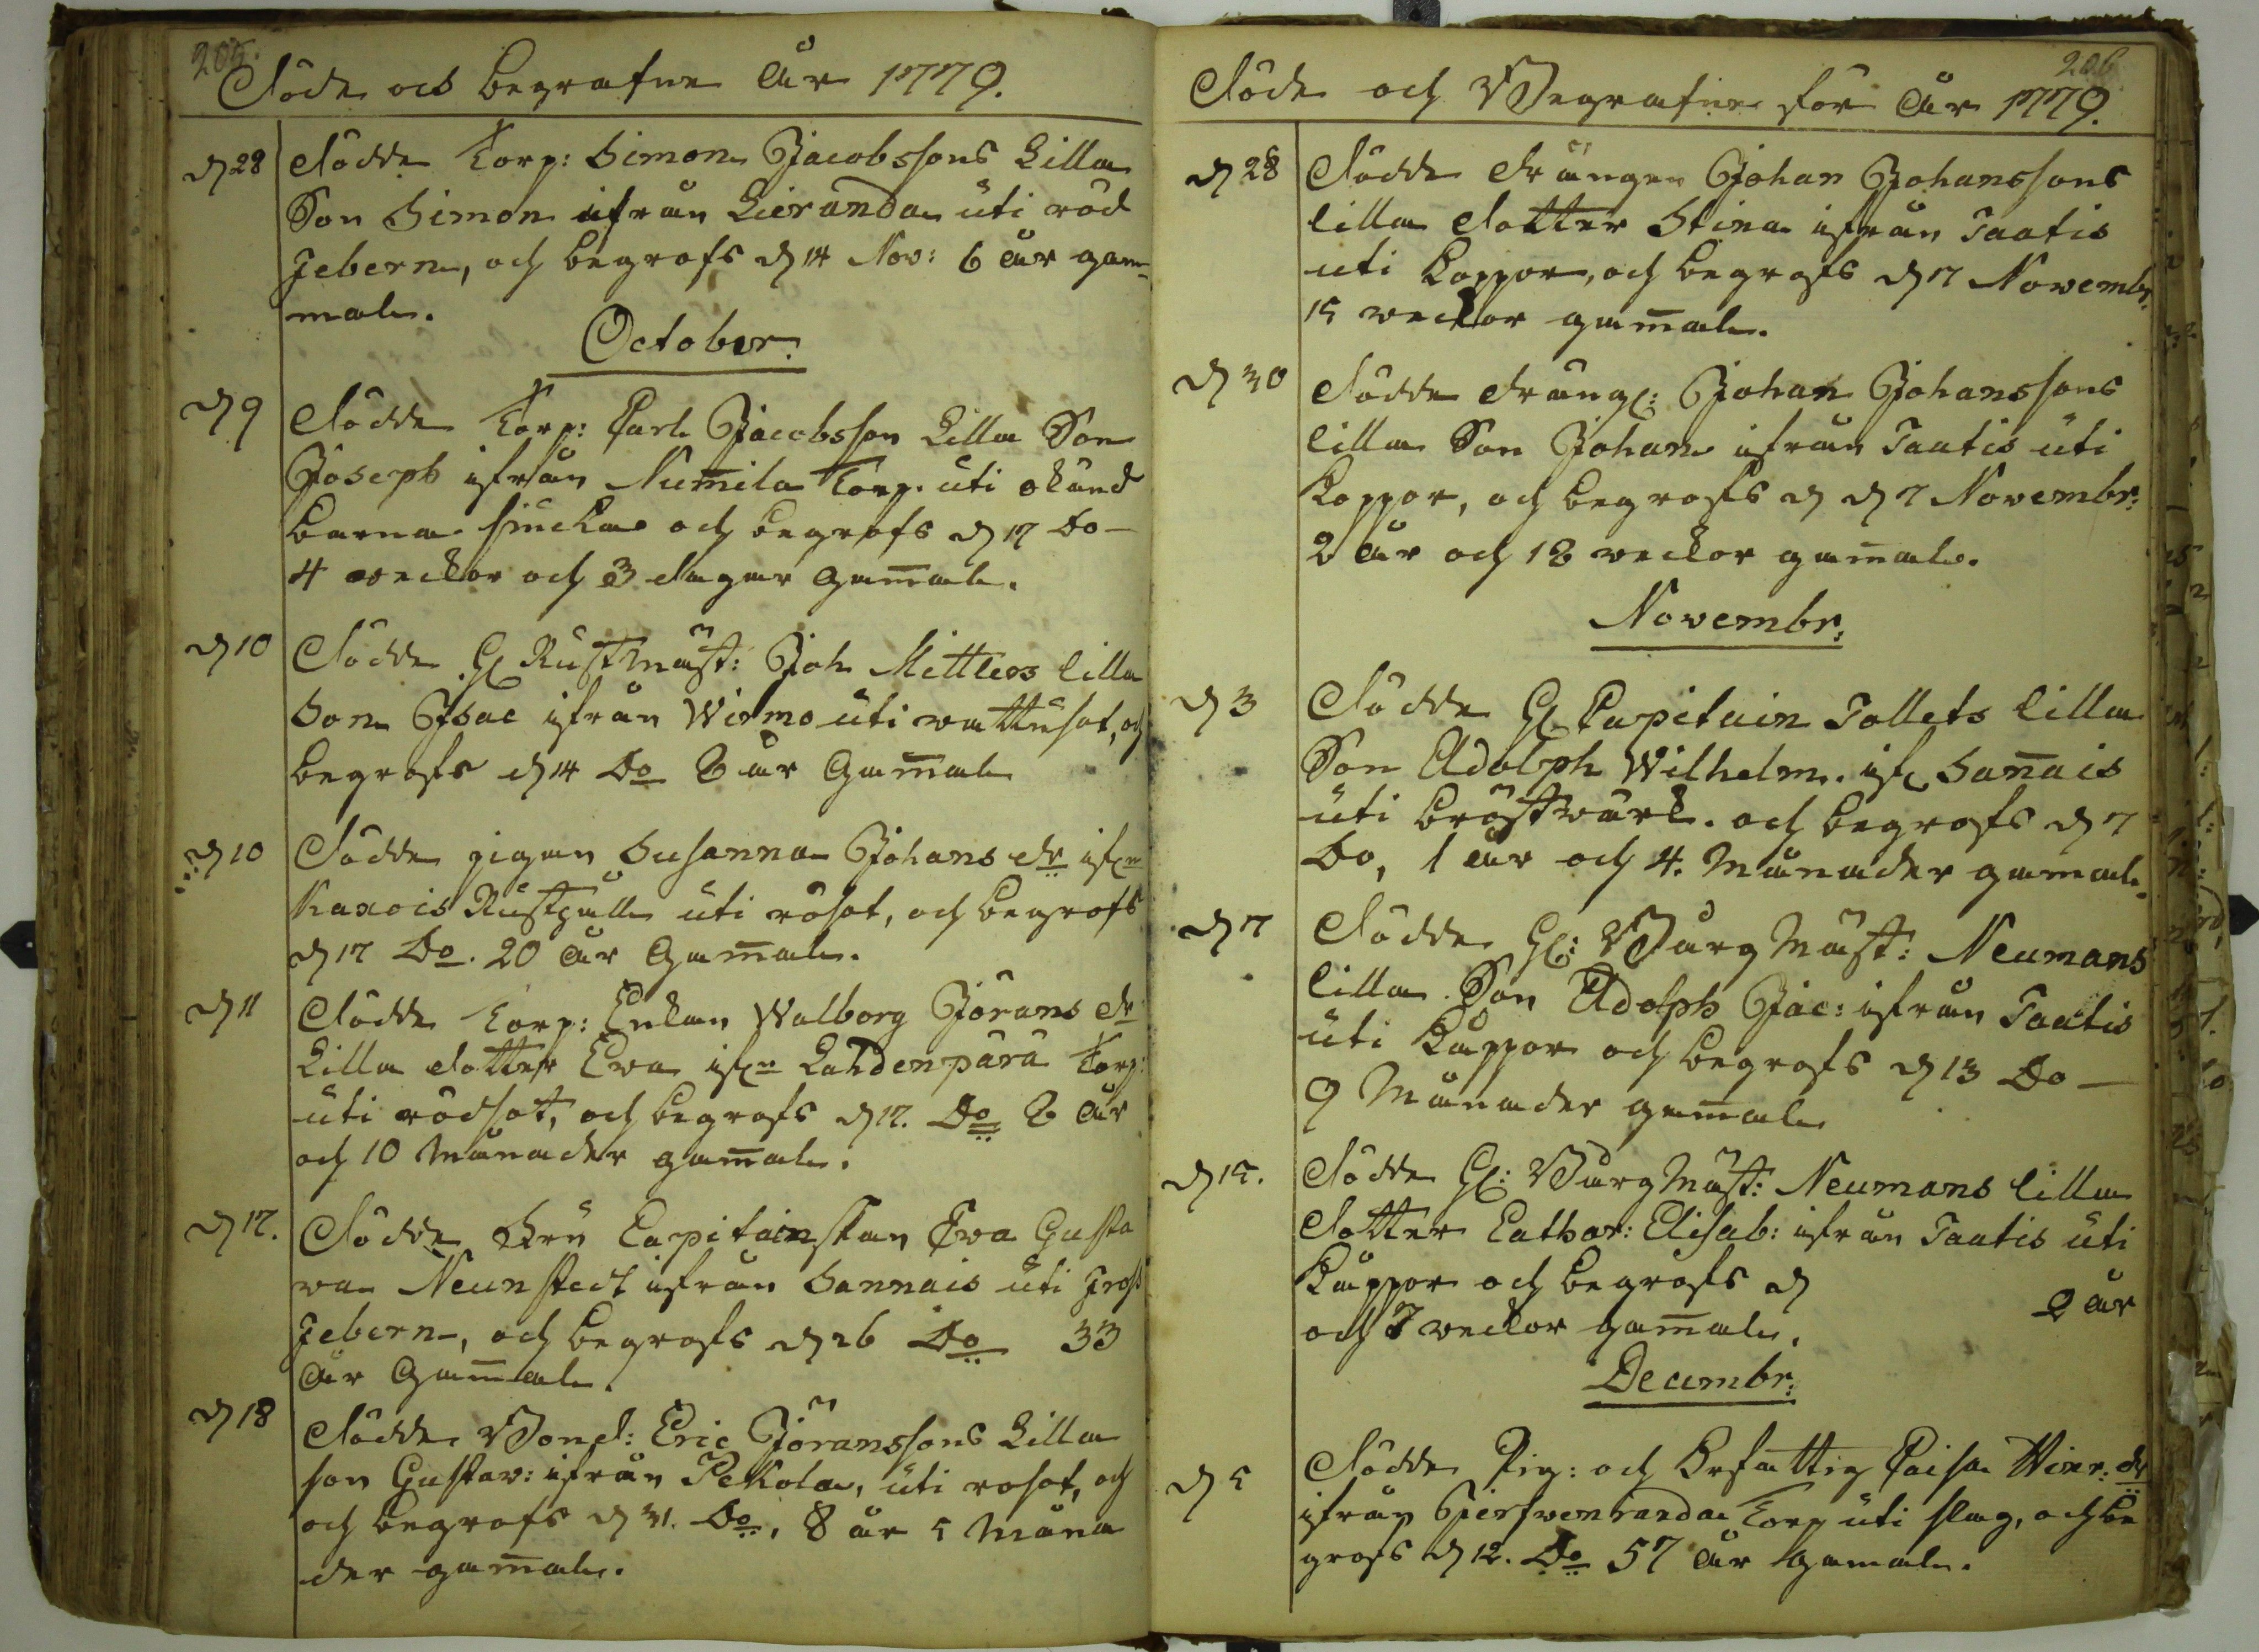 205.
Döde och begrafne År 1779.
d 28 Dödde Torp: Simon Jacobssons Lilla
Son Simon ifrån Lieranda uti röd
febern, och begrofs d 14 Nov: 6 år gam-
mal.
October.
d 9 Dödde Torp: Carl Jacobsson Lilla Son
Joseph ifrån Numila Torp. uti okänd
barna siucka och begrofs d 17 Do
4 weckor och 3 dagar Gamal.
d 10 Dödde H Rustmäst: Joh Mittlers lilla
Son Isac ifrån Wirmo uti wattusot, och
begrofs d 14 Do 2 år Gamal
d 10 Dödde pigan Susanna Johans dr ifrn
Kaxois Rusthåll uti rösot, och begrofs
d 17 Do. 20 år Gamal.
d 11 Dödde Torp: Enkan Walborg Jörans dr
Lilla dotter Eva ifrn Lahdenpärä Torp:
uti rödsot, och begrofs d 17. Do 2 år
och 10 månader gamal.
d 17. Dödde Fru Capitainskan Eva Gusta
va Neunstedt ifrån Sannais uti
febern, och begrofs d 26 Do 33
år Gamal.
d 18 Dödde Bond: Eric Jöranssons Lilla
son Gustav: ifrån Pekola, uti rosot, och
och begrofs d 31. Do. 8 år 5 måna
der gamal.
206
Döde och Begrafne för År 1779.
d 28 Dödde drängen Johan Johanssons
lilla dotter Stina ifrån Taatis
uti koppor, och begrofs d 7 Novembr:
15 weckor gamal.
d 30 Dödde dräng: Johan Johanssons
lilla Son Johan ifrån Taatis uti
koppor, och begrofs d d 7 Novembr:
2 år och 18 weckor gamal.
Novembr:
d 3 Dödde H Capitain Tollets lilla
Son Adolph Wilhelm. ifr Sanais
uti bröstwärk. och begrofs d 7
Do, 1 år och 4. Månader gamal.
d 7 Dödde H: Burg Mäst: Neumans
lilla Son Adolph Jac: ifrån Taatis
uti kåppor och begrofs d 13 Do
9 Månader gamal
d 15. Dödde H: Burg Mäst: Neumans lilla
dotter Cathar: Elisab: ifrån Taatis uti
kåppor och begrofs d 2 år
och 7 weckor gamal.
Decembr:
d 5 Dödde Pig: och Caisa dr
ifrån Torp uti slag, och be
grofs d 12. Do 57 år gamal.